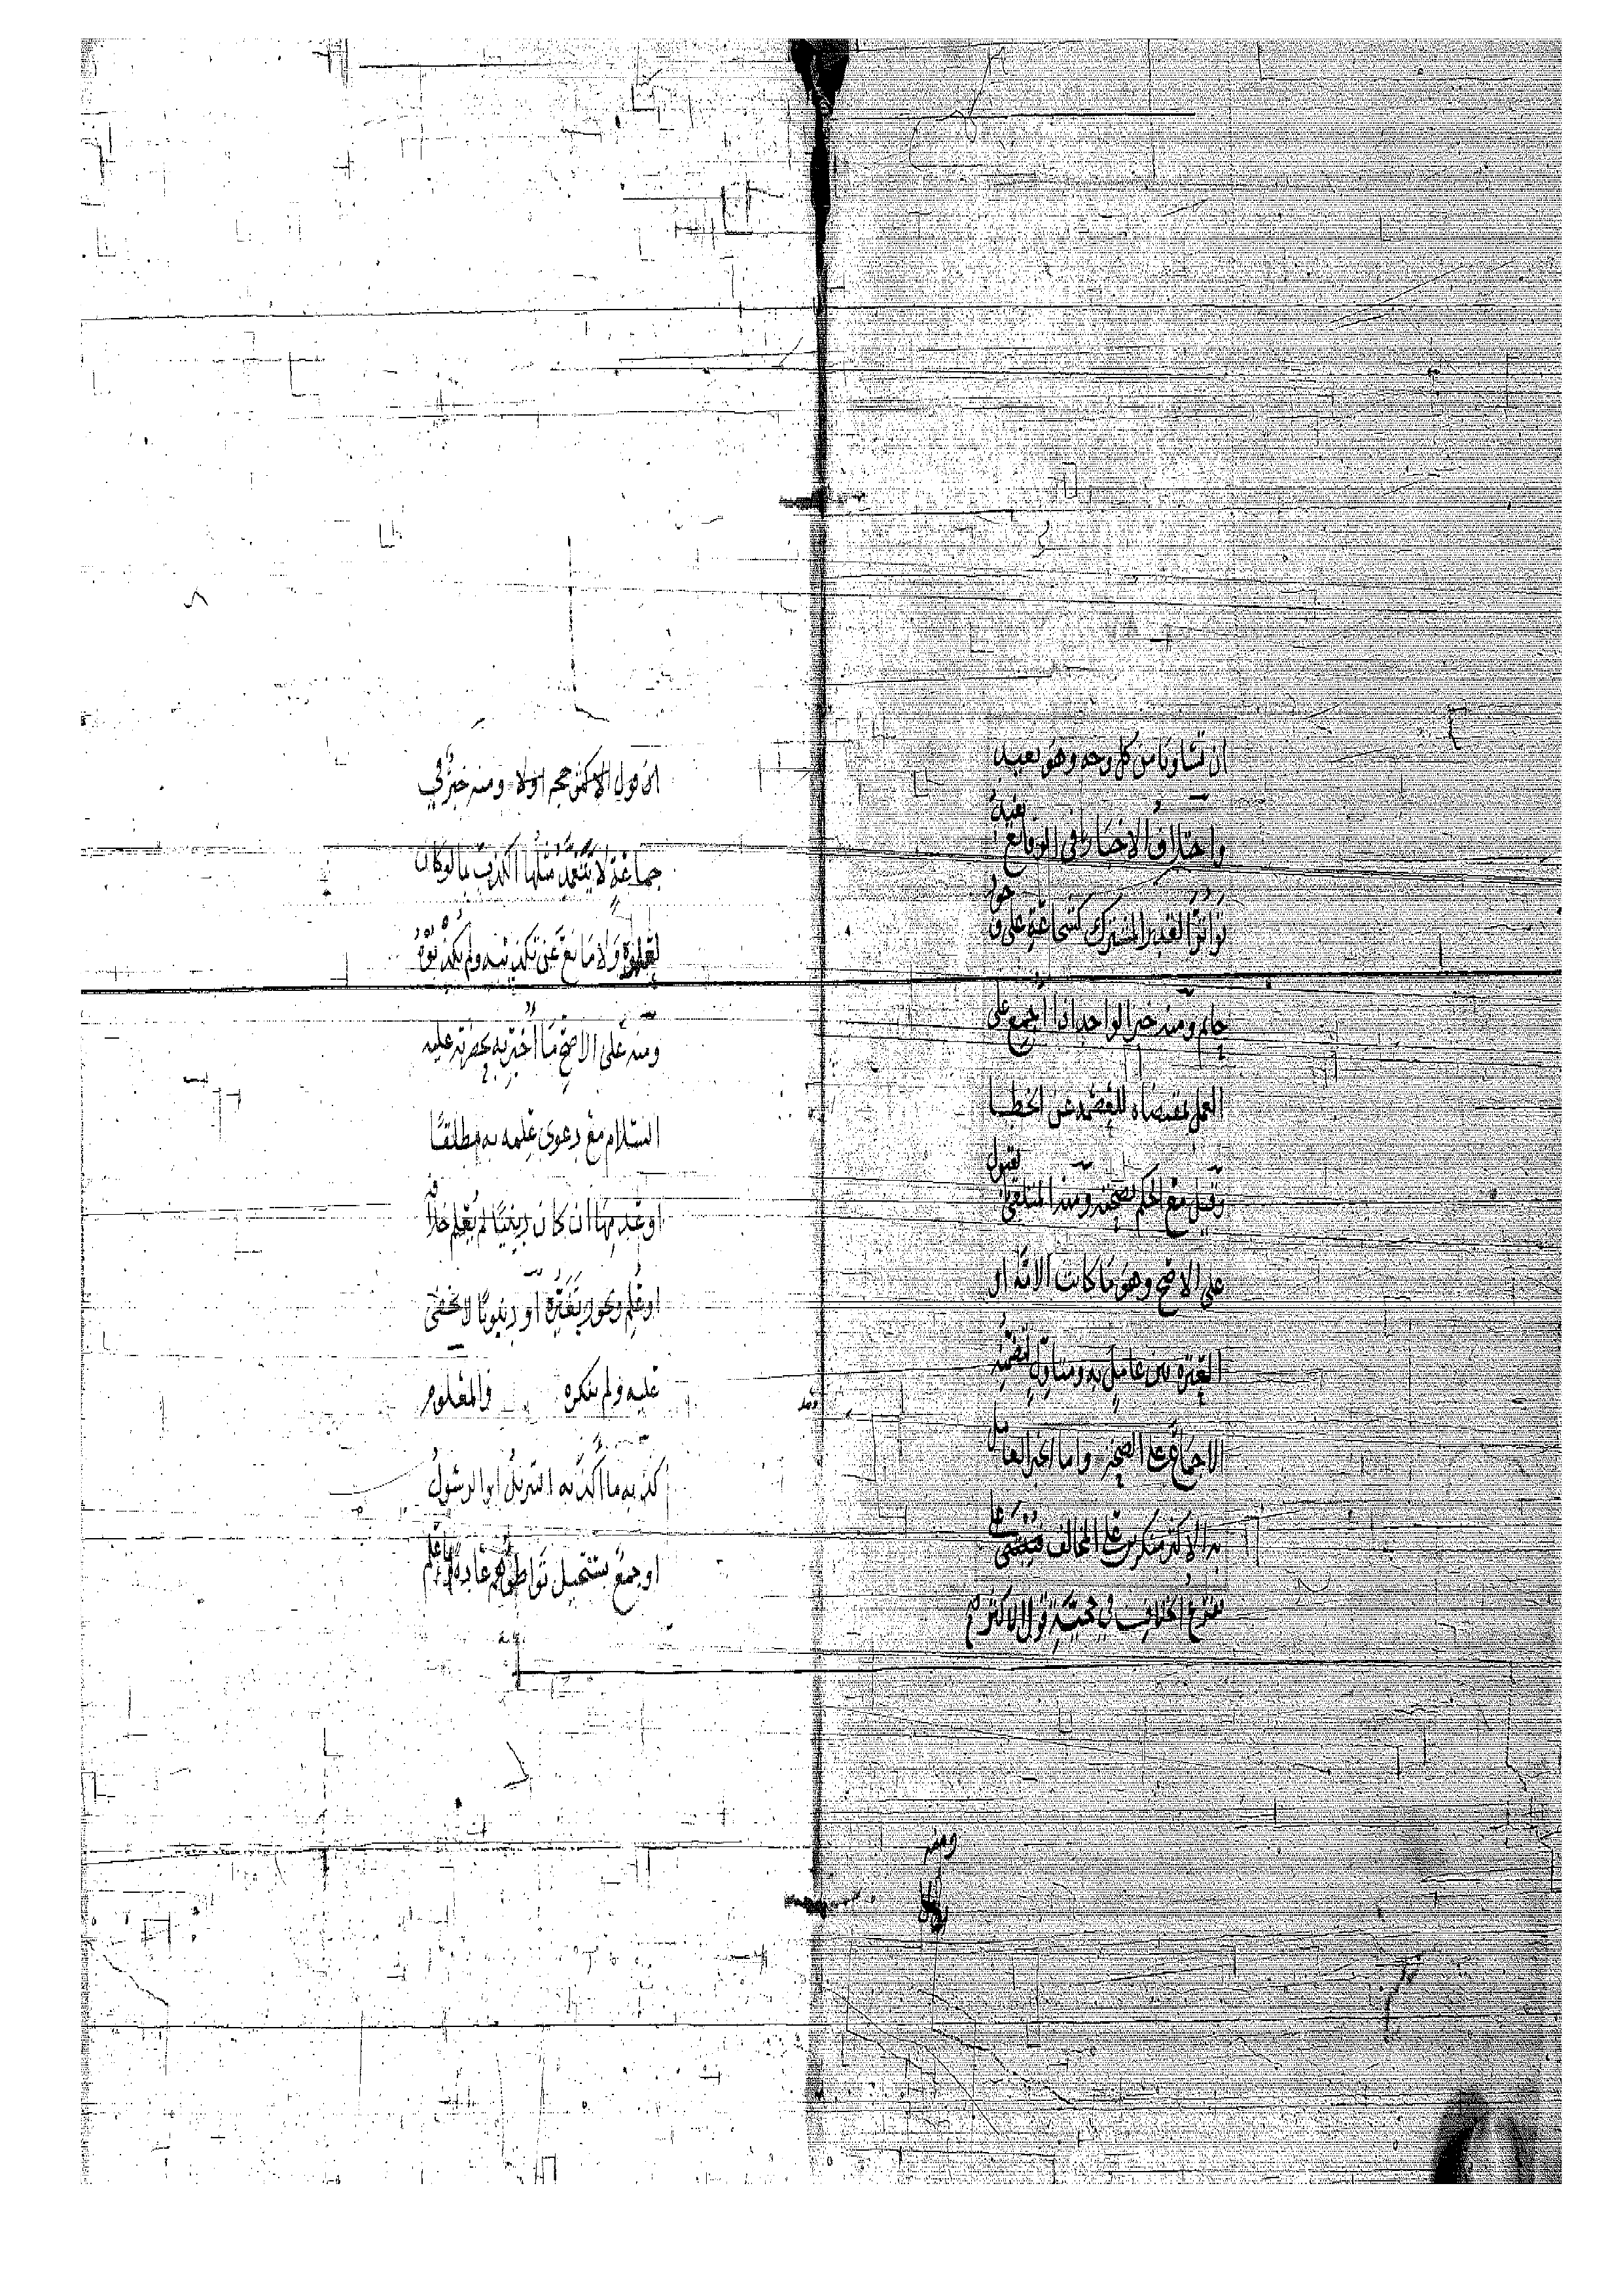 ان تساويا من كل وجه وهو بعيد
واختلاف الاخبار في الوقايع بغية
تواتر القدر المشترك كشجاعة علي وجود
حاتم ومنه خبر الواحد اذا اجمع على
العمل بمقتضاه للعصمه عن الخطا
وقيل مع الحكم بصحته ومنه المتلقى بقبول
على الاصح وهو ما كانت الامة او
العترة بين عامل به ومتاول لتضمنه
الاجماع على الصحة واما الخبر العامل
به الاكثر منكرين على المخالف فيبنى على
الخلاف في حجية قول الاكثر
ومنه
الاكثر حجه اولا ومنه خبر في
جماعة لا يتعمد مثلها الكذب بما لو كان
لعلموه ولا مانع عن تكذيبه ولم يكذبوه
ومنه على الاصح ما اخبر به بحضرته عليه
السلام مع دعوى علمه به مطلقا
او عدمها ان كان دينيا لم يعلم خلافه
او علم ويجوز تغيره او دنيويا لا يخفى
عليه ولم ينكره والمعلوم
كذبه ما اكذبه التنزيل او الرسول
او جمع يستحيل تواطؤهم عادة